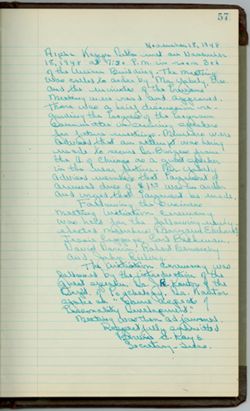 57
November 18, 1948
Alpha Kappa Delta met on November
18, 1948 at 7:30 P.M. in room 302
of the Union Building. The meeting
was called to order by Mr. Yablo, Pres.
and the minutes of the previous
meeting were read and approved.
There was a brief discussion re-
garding the progress of the program
committee in securing speakers
for future meetings. Members were
advised that an attempt was being
made to secure Dr. Burgess from
the U. of Chicago as a guest speaker
in the near future.
advised members that payment of
annual dues of $1.00 was in order
and urged that payment be made.
Following the business
meeting initiation ceremonies
was held for the following newly
selected members:
David
and
The initiation ceremony was
followed by the introduction of the
guest speaker, Dr. J. R. Kantor of the
Dept. of Psychology. Dr. Kantor
spoke on "Some Aspects of
Personality Development."
Meeting was then adjourned
Respectfully submitted
S. Kays
Secretary-Treas.